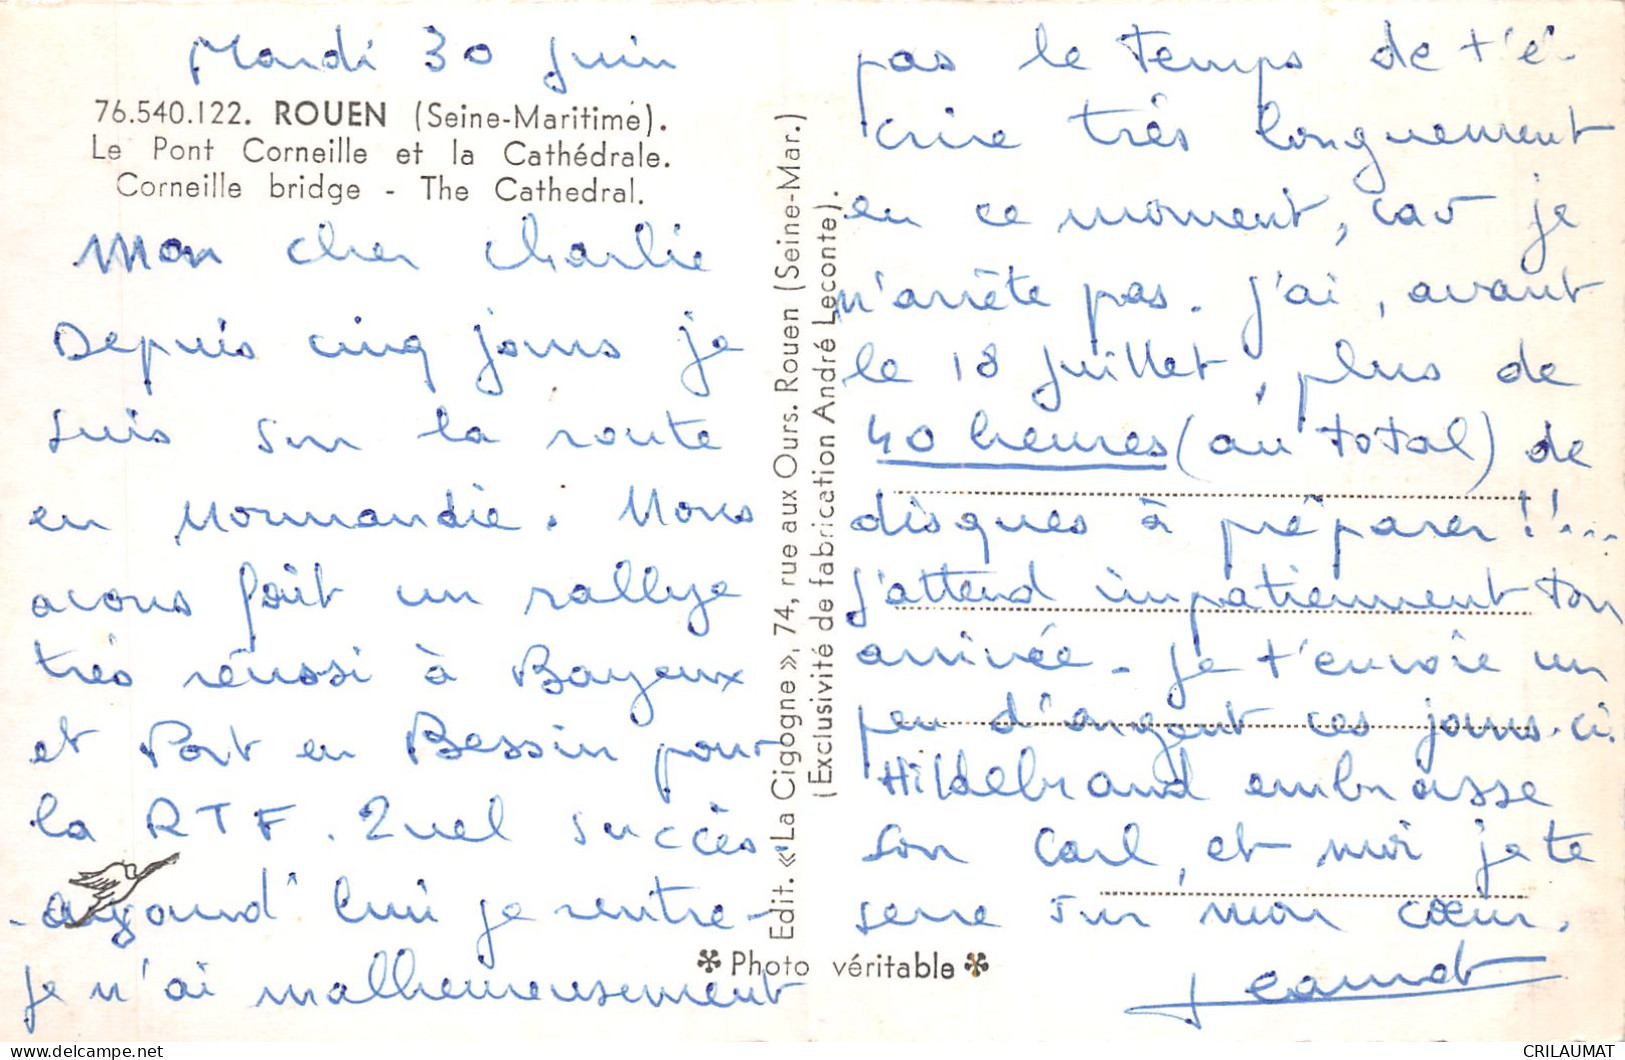 Mardi 30 Juin
76.540.122. ROUEN (Seine-Maritime).
Le Pont Corneille et la Cathédrale.
Corneille bridge - The Cathedral.
Mon cher Charlie
Depuis cinq jours je
suis sur la route
en Normandie. Nous
avons fait un rallye
très réussi à Bayeux
et Port en Bessin pour
la RTF. Quel succès
- aujourd'hui je rentre -
Je n'ai malheureusement
Edit. « La Cigogne », 74, rue aux Ours. Rouen (Seine-Mar.)
(Exclusivité de fabrication André Leconte).
✻ Photo véritable ✻
pas le temps de t'é-
crire très longuement
en ce moment, car je
n'arrête pas. J'ai, avant
le 18 Juillet, plus de
40 heures (au total) de
disques à préparer!!...
J'attend impatiemment ton
arrivée - Je t'envoie un
peu d'argent ces jours-ci.
Hildebrand embrasse
son Carl, et moi je te
serre sur mon cœur.
CRILAUMAT